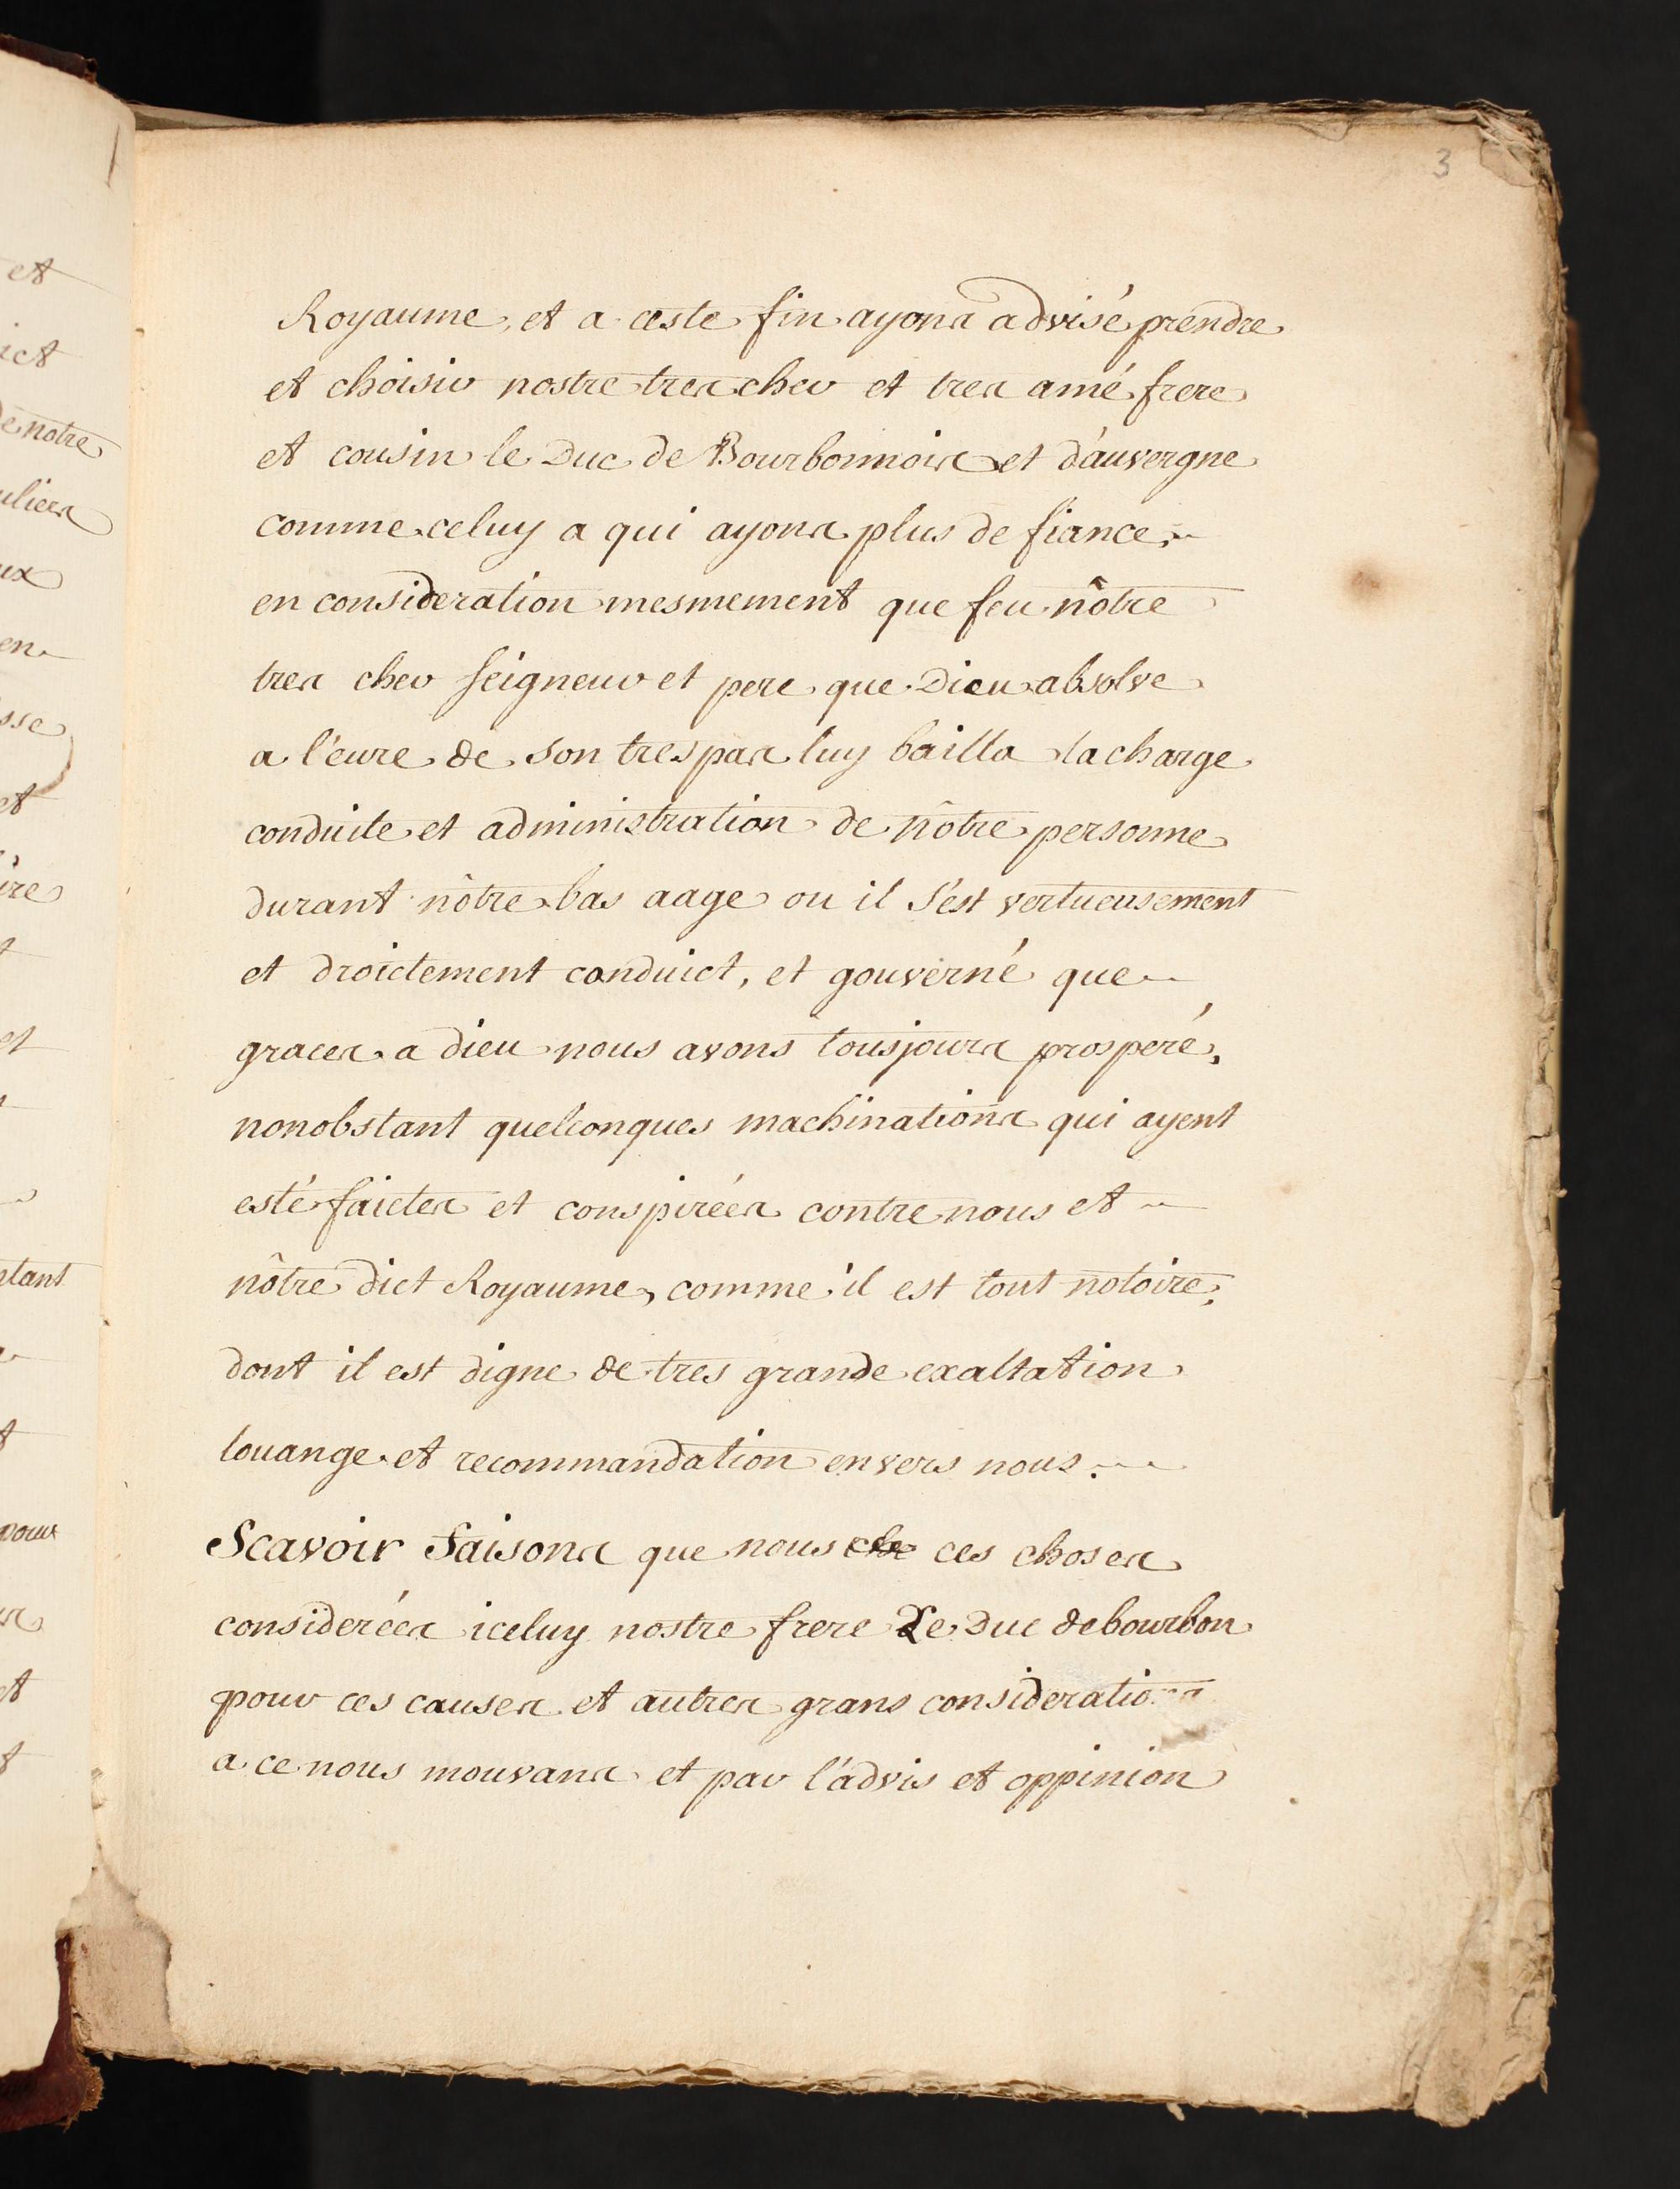 3
Royaume, et a ceste fin ayons advisé prendre
et choisir nostre tres cher et tres amé frere
et cousin le Duc de Bourbonnois et d'auvergne
comme celuy a qui ayons plus de fiance,
en consideration mesmement que feu nôtre
tres cher seigneur et pere que Dieu absolve
a l'eure de son trespas luy bailla la charge
conduite et administration de nôtre personne
durant nôtre bas aage ou il s'est vertueusement
et droictement conduict, et gouverné que
graces a dieu nous avons tousjours prosperé,
nonobstant quelconques machinations qui ayent
esté faictes et conspirées contre nous et
nôtre dict Royaume, comme il est tout notoire;
dont il est digne de tres grande exaltation
louange et recommandation envers nous.
Scavoir faisons que nous ces choses
considerées iceluy nostre frere Le Duc de bourbon
pour ces causes et autres grans considerations
a ce nous mouvans et par l'advis et oppinion
et
ict
de notre
uliers
ux
en
sse
et
ire
et
ntant
pour
et